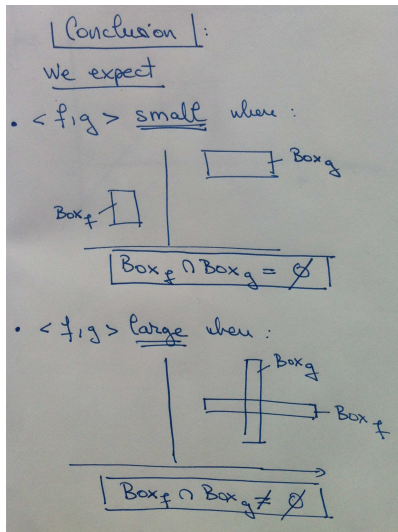 Conclusion :
We expect
• <f,g> small when :
Box_g
Box_f
Box_f ∩ Box_g = ∅
• <f,g> large when :
Box_g
Box_f
Box_f ∩ Box_g ≠ ∅